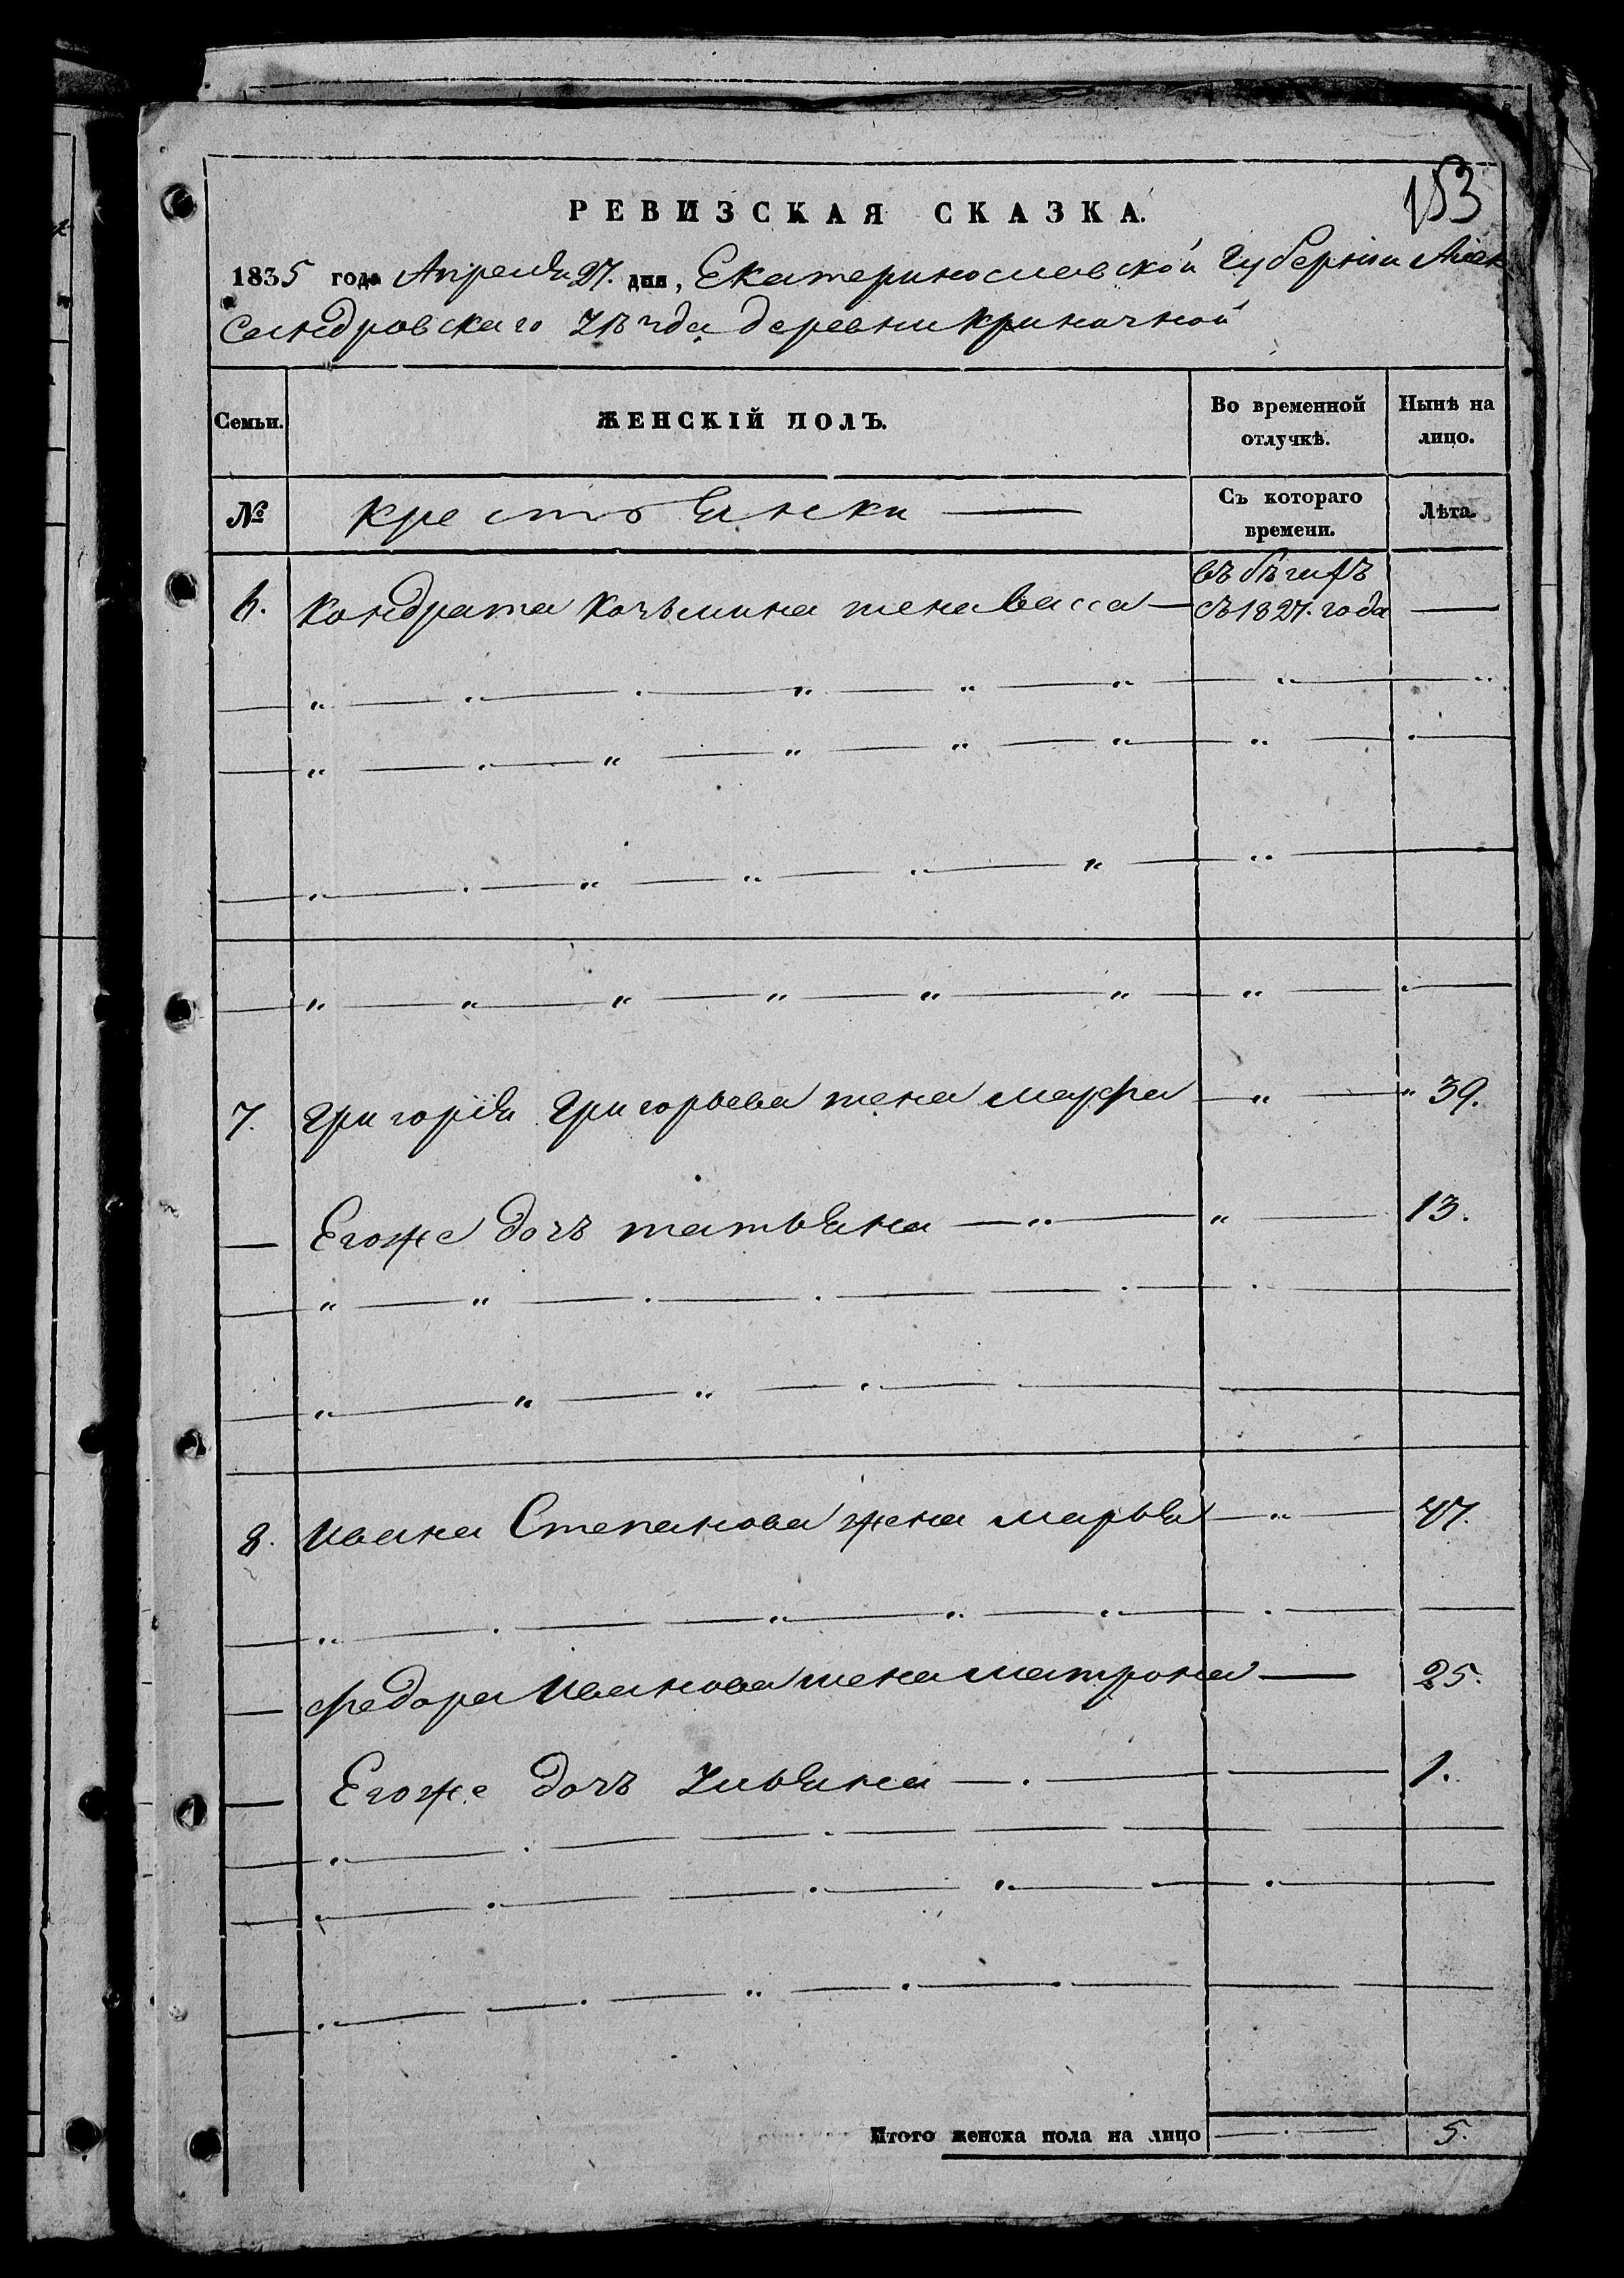 153
РЕВИЗСКАЯ СКАЗКА.
1835 года Апреля 27. дня, Екатеринославской Губернии Алек
сандровскаго уѣзда деревни Криничной
Семьи. ЖЕНСКІЙ ПОЛЪ. Во временной отлучкѣ. Нынѣ на лицо.
№ Крестьянки Съ котораго времени. Лѣта.
въ бѣгахъ
6. Кондрата Козьмина жена Васса — съ 1827. года —
7. Григорія Григорьева жена Марфа — „ — „ 39.
— Егоже дочь татьяна — „ — „ — 13.
8. Ивана Степанова жена марья — „ — 47.
— Федора Иванова жена матрона — 25.
— Егоже дочь Ульяна — . — 1.
Итого женска пола на лицо — . — 5.